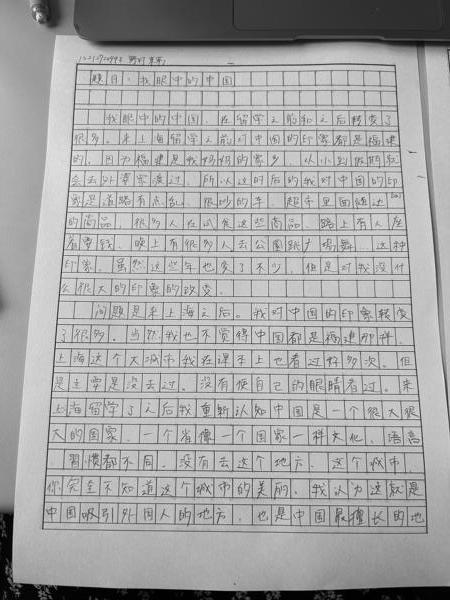 题目：我眼中的中国
我眼中的中国，在留学之前和之后转变了
很多。来上海留学之前对中国的印象都是福建
的，因为福建是我妈妈的家乡，从小到
会去外婆家渡过，所以这时后的我对中国的印
象是道路有点乱，很吵的车，超市里面
的商品，很多人在试食这些商品，路上有人座
着要钱，晚上有很多人去公园跳广场舞，这种
印象。虽然这些年也变了不少，但是对我没什
么很大的印象的改变。
问题是来上海之后。我对中国的印象转变
了很多。当然我也不觉得中国都是福建那样，
上海这个大城市我在课本上也看过好多次。但
是主要是没去过，没有使自己的眼睛看过。来
上海留学了之后我重新认知中国是一个很大很
大的国家，一个省像一个国家一样文化，语言
習惯都不同，没有去这个地方，这个城市，
你完全不知道这个城市的美丽。我认为这就是
中国吸引外国人的地方，也是中国最擅长的地